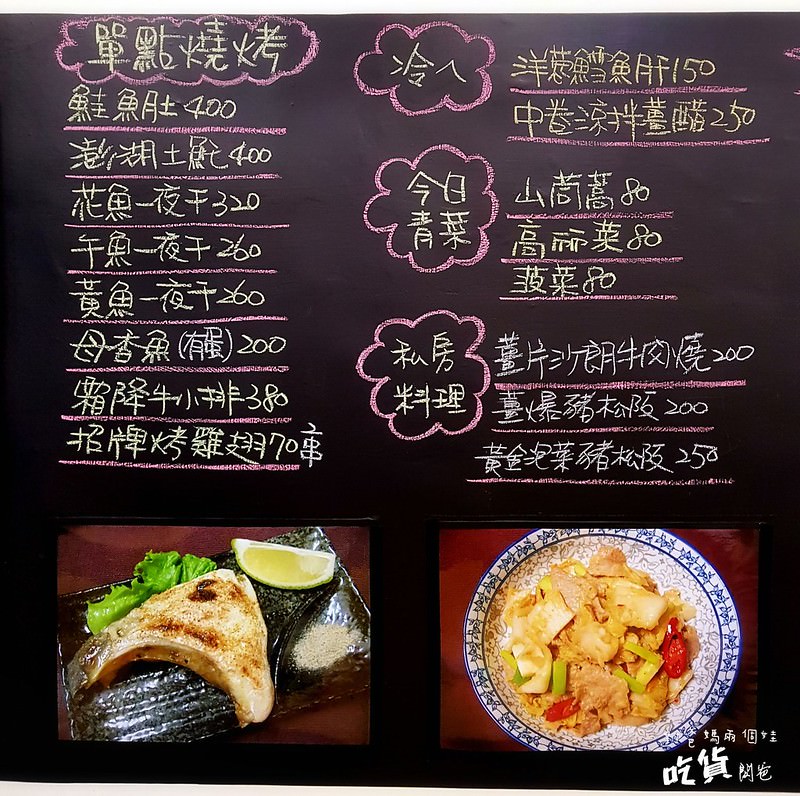 單點燒烤
鮭魚肚400
澎湖土魠400
花魚一夜干320
午魚一夜干260
黃魚一夜干260
母香魚(有蛋)200
霜降牛小排380
招牌烤雞翅70串
冷
洋蔥鱈魚肝150
中卷涼拌薑醋250
今日
青菜
山茼蒿80
高丽菜80
菠菜80
私房
料理
薑片沙朗牛肉燒200
薑爆豬松阪200
黃金泡菜豬松阪250
爸媽兩個娃
吃貨闆爸